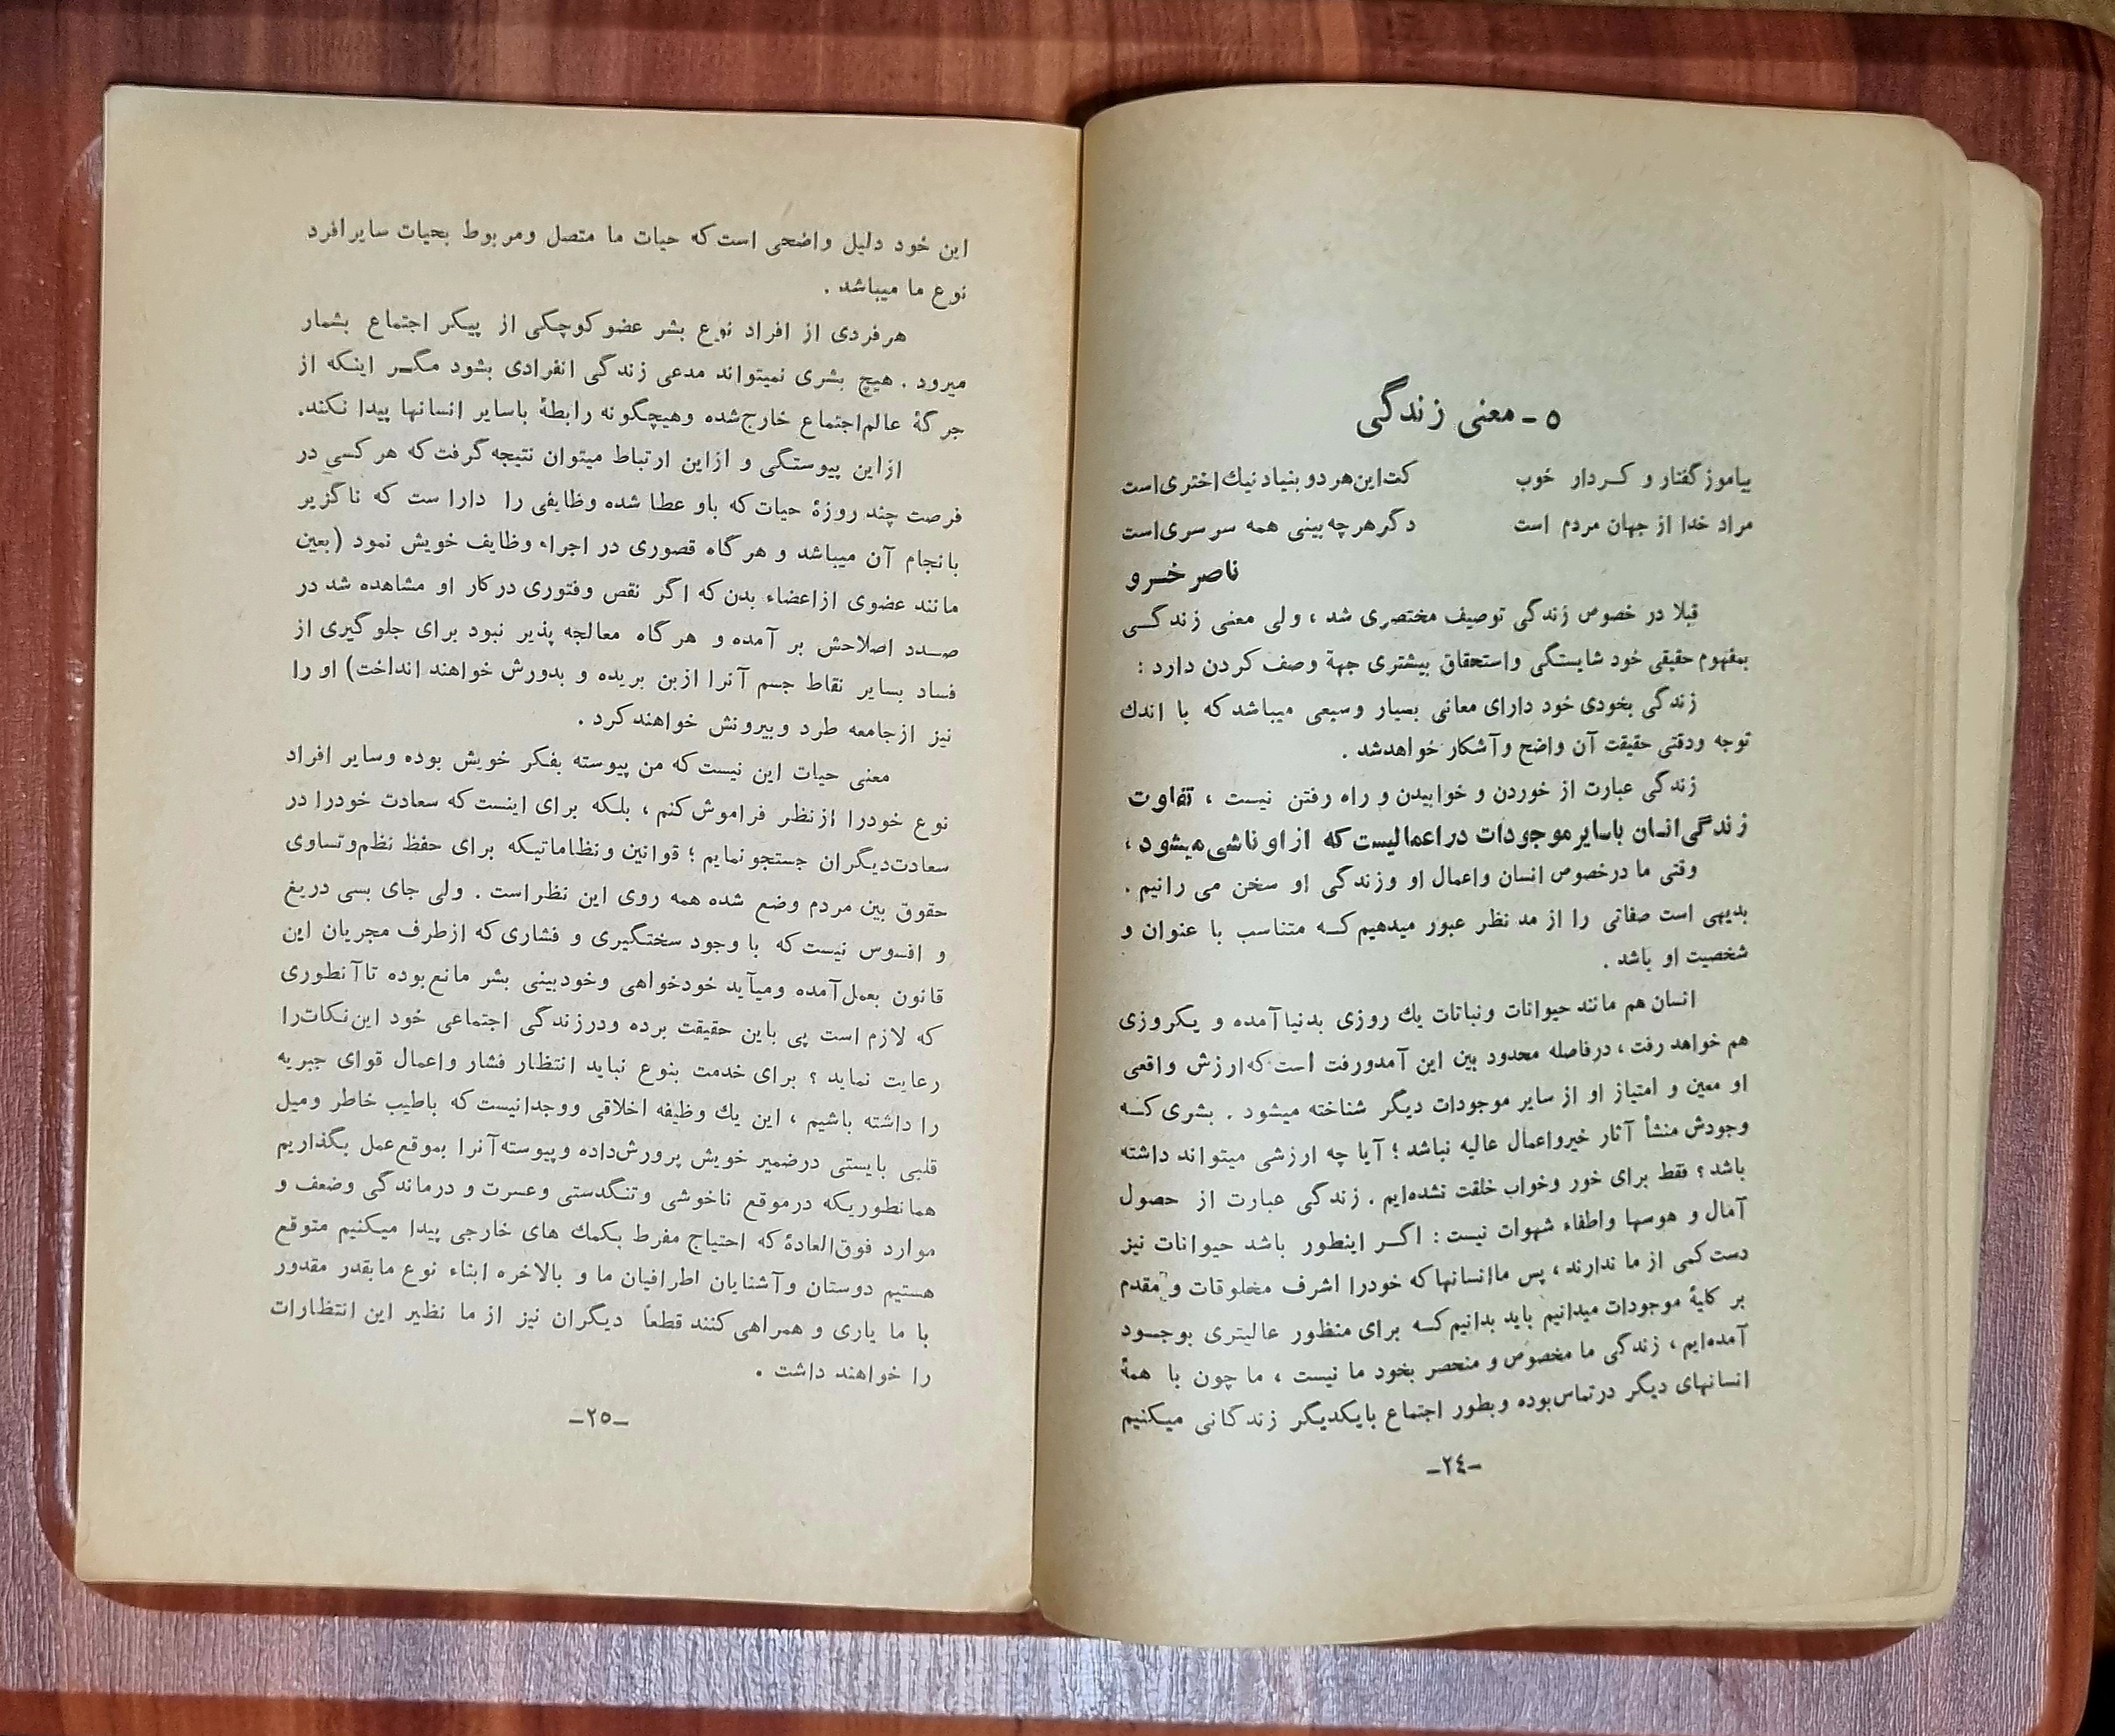 ۵ ـ معنی زندگی
بیاموز گفتار و کردار خوب کت این هر دو بنیاد نیك اختری است
مراد خدا از جهان مردم است دگر هر چه بینی همه سرسری است
ناصر خسرو
قبلا در خصوص زندگی توصیف مختصری شد ، ولی معنی زندگی
بمفهوم حقیقی خود شایستگی واستحقاق بیشتری جهة وصف کردن دارد :
زندگی بخودی خود دارای معانی بسیار وسیعی میباشد که با اندك
توجه ودقتی حقیقت آن واضح وآشکار خواهدشد .
زندگی عبارت از خوردن و خوابیدن و راه رفتن نیست ، تفاوت
زندگی انسان باسایر موجودات در اعمالیست که از او ناشی میشود ،
وقتی ما درخصوص انسان واعمال او وزندگی او سخن می رانیم .
بدیهی است صفاتی را از مد نظر عبور میدهیم که متناسب با عنوان و
شخصیت او باشد .
انسان هم مانند حیوانات ونباتات یك روزی بدنیا آمده و یکروزی
هم خواهد رفت ، درفاصله محدود بین این آمدورفت است که ارزش واقعی
او معین و امتیاز او از سایر موجودات دیگر شناخته میشود . بشری که
وجودش منشأ آثار خیرواعمال عالیه نباشد ؛ آیا چه ارزشی میتواند داشته
باشد ؟ فقط برای خور وخواب خلقت نشده‌ایم . زندگی عبارت از حصول
آمال و هوسها واطفاء شهوات نیست : اگر اینطور باشد حیوانات نیز
دست کمی از ما ندارند ، پس ماانسانها که خودرا اشرف مخلوقات و مقدم
بر کلیهٔ موجودات میدانیم باید بدانیم که برای منظور عالیتری بوجود
آمده‌ایم ، زندگی ما مخصوص و منحصر بخود ما نیست ، ما چون با همهٔ
انسانهای دیگر درتماس بوده وبطور اجتماع بایکدیگر زندگانی میکنیم
ـ۲٤ـ
این خود دلیل واضحی است که حیات ما متصل ومربوط بحیات سایر افرد
نوع ما میباشد .
هرفردی از افراد نوع بشر عضو کوچکی از پیکر اجتماع بشمار
میرود . هیچ بشری نمیتواند مدعی زندگی انفرادی بشود مگر اینکه از
جرگهٔ عالم اجتماع خارج شده وهیچگونه رابطهٔ باسایر انسانها پیدا نکند.
ازاین پیوستگی و ازاین ارتباط میتوان نتیجه گرفت که هر کسی در
فرصت چند روزهٔ حیات که باو عطا شده وظایفی را دارا ست که ناگزیر
بانجام آن میباشد و هرگاه قصوری در اجراء وظایف خویش نمود (بعین
مانند عضوی ازاعضاء بدن که اگر نقص وفتوری درکار او مشاهده شد در
صدد اصلاحش بر آمده و هرگاه معالجه پذیر نبود برای جلوگیری از
فساد بسایر نقاط جسم آنرا ازبن بریده و بدورش خواهند انداخت) او را
نیز ازجامعه طرد وبیرونش خواهند کرد .
معنی حیات این نیست که من پیوسته بفکر خویش بوده وسایر افراد
نوع خودرا ازنظر فراموش کنم ، بلکه برای اینست که سعادت خودرا در
سعادت‌دیگران جستجو نمایم ؛ قوانین ونظاماتیکه برای حفظ نظم وتساوی
حقوق بین مردم وضع شده همه روی این نظر است . ولی جای بسی دریغ
و افسوس نیست که با وجود سختگیری و فشاری که ازطرف مجریان این
قانون بعمل آمده ومیآید خودخواهی وخودبینی بشر مانع بوده تا آنطوری
که لازم است پی باین حقیقت برده ودرزندگی اجتماعی خود این نکات‌را
رعایت نماید ؟ برای خدمت بنوع نباید انتظار فشار واعمال قوای جبریه
را داشته باشیم ، این یك وظیفه اخلاقی ووجدانیست که باطیب خاطر ومیل
قلبی بایستی درضمیر خویش پرورش داده وپیوسته آنرا بموقع عمل بگذاریم
همانطوریکه درموقع ناخوشی وتنگدستی وعسرت و درماندگی وضعف و
موارد فوق‌العادهٔ که احتیاج مفرط بکمك های خارجی پیدا میکنیم متوقع
هستیم دوستان وآشنایان اطرافیان ما و بالاخره ابناء نوع ما بقدر مقدور
با ما یاری و همراهی کنند قطعاً دیگران نیز از ما نظیر این انتظارات
را خواهند داشت .
ـ۲۵ـ